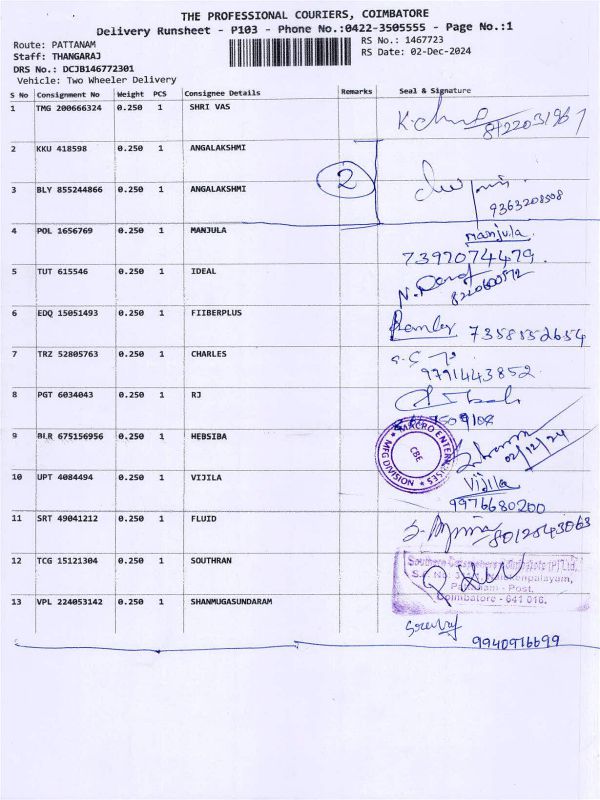 THE PROFESSIONAL COURIERS, COIMBATORE
Delivery Runsheet - P103 - Phone No.:0422-3505555 - Page No.:1
Route: PATTANAM
RS No.: 1467723
Staff: THANGARAJ
RS Date: 02-Dec-2024
DRS No.: DCJB146772301
Vehicle: Two Wheeler Delivery
S No Consignment No Weight PCS Consignee Details Remarks Seal & Signature
1 TMG 200666324 0.250 1 SHRI VAS
2 KKU 418598 0.250 1 ANGALAKSHMI
2
3 BLY 855244866 0.250 1 ANGALAKSHMI
9363208508
4 POL 1656769 0.250 1 MANJULA manjula.
7397074479.
5 TUT 615546 0.250 1 IDEAL
6 EDQ 15051493 0.250 1 FIIBERPLUS
7358552654
7 TRZ 52805763 0.250 1 CHARLES
9791443852
8 PGT 6034043 0.250 1 RJ
9 BLR 675156956 0.250 1 HEBSIBA
MACRO ENTERPRISES
MFG DIVISION
CBE
02/12/24
10 UPT 4084494 0.250 1 VIJILA Vijila
9976680200
11 SRT 49041212 0.250 1 FLUID
8012543063
12 TCG 15121304 0.250 1 SOUTHRAN
Post.
Coimbatore - 641 016.
13 VPL 224053142 0.250 1 SHANMUGASUNDARAM
9940916699